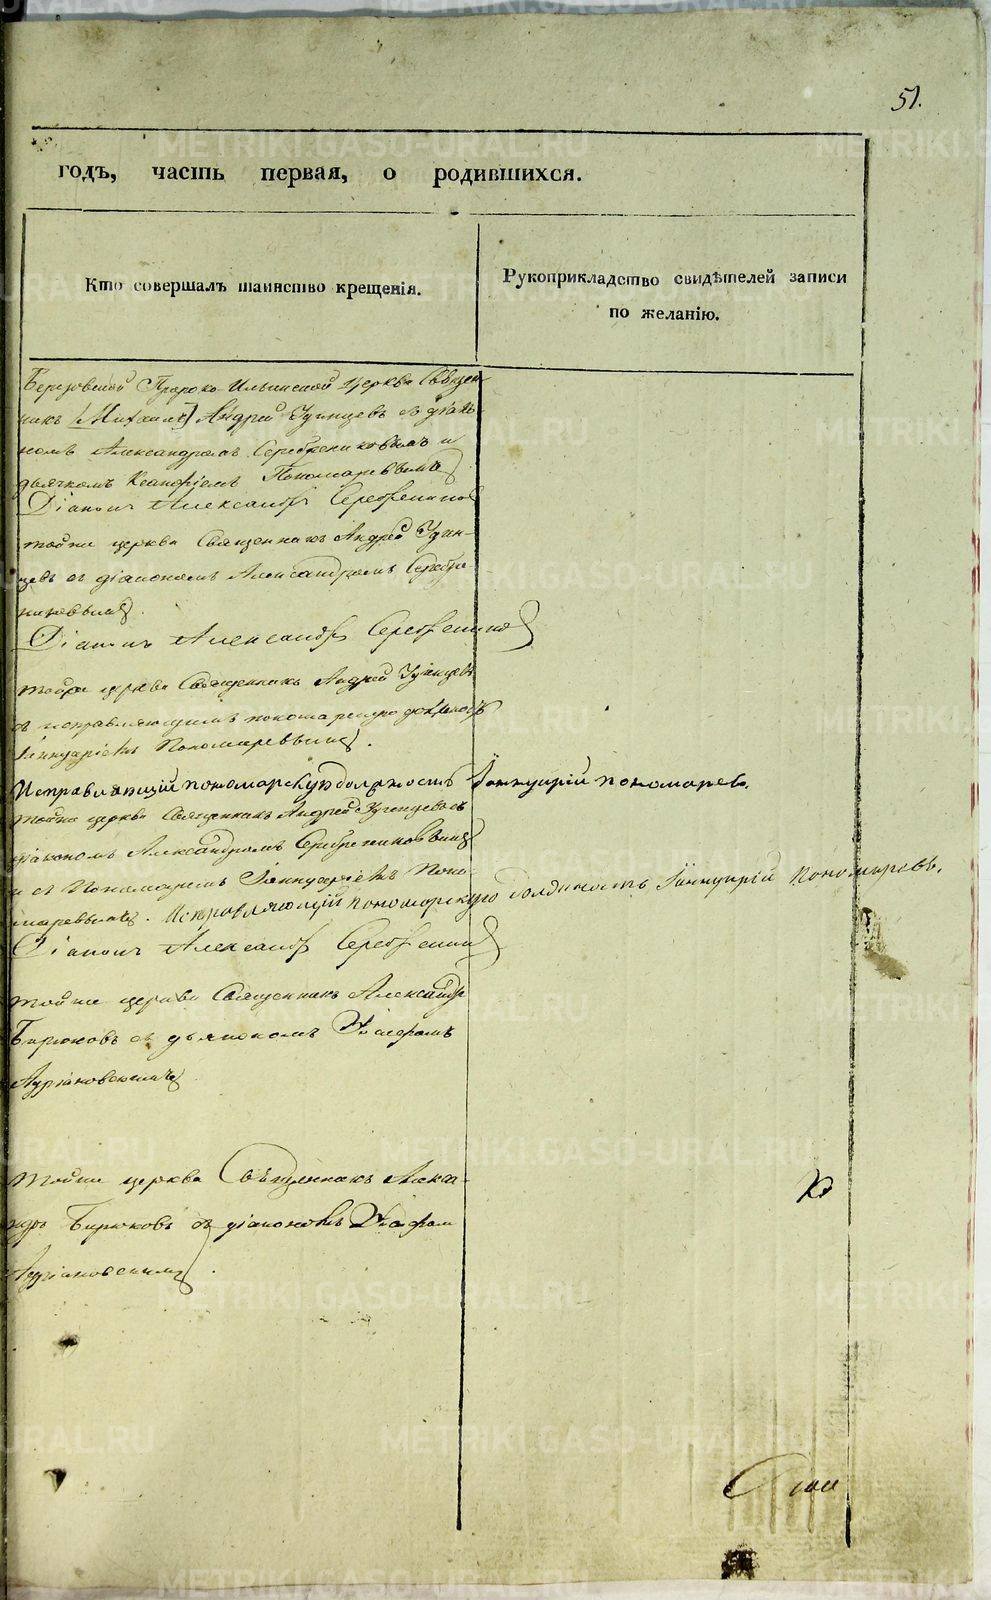 51.
годъ, часть первая, о родившихся.
Кто совершалъ таинство крещенія.
Рукоприкладство свидѣтелей записи
по желанію.
Березовской Пророко-Ильинской церкви Священ-
никъ [Михаилъ] Андрей Удинцевъ съ діако-
номъ Александромъ Серебрениковымъ и
дьячкомъ Пономаревымъ
Діаконъ Александръ Серебрениковъ
тойже церкви Священникъ Андрей Удин-
цевъ съ діакономъ Александромъ Серебре
никовымъ.
Діаконъ Александръ Серебрениковъ
тойже церкви Священникъ Андрей Удинцевъ
съ исправляющимъ пономарскую должность
Іаннуаріемъ Пономаревымъ.
Исправляющій пономарскую должность Іаннуарій Пономаревъ.
тойже церкви Священникъ Андрей Удинцевъ съ
діакономъ Александромъ Серебрениковымъ
и съ Пономаремъ Іаннуаріемъ Поно-
маревымъ. Исправляющій пономарскую должность Іаннуарій Пономаревъ.
Діаконъ Александръ Серебрениковъ
тойже церкви Священникъ Александръ
Бирюковъ съ дьякономъ
тойже церкви Священникъ Алекса-
ндръ Бирюковъ съ діакономъ
METRIKI.GASO-URAL.RU